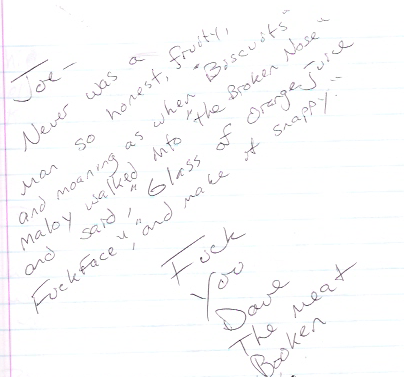 Joe-
Never was a
man so honest, fruity,
and moaning as when "Biscuits"
Maloy walked into "the Broken Nose"
and said, "Glass of Orange Juice
FuckFace", "and make it snappy."
Fuck
You
Dave
The meat